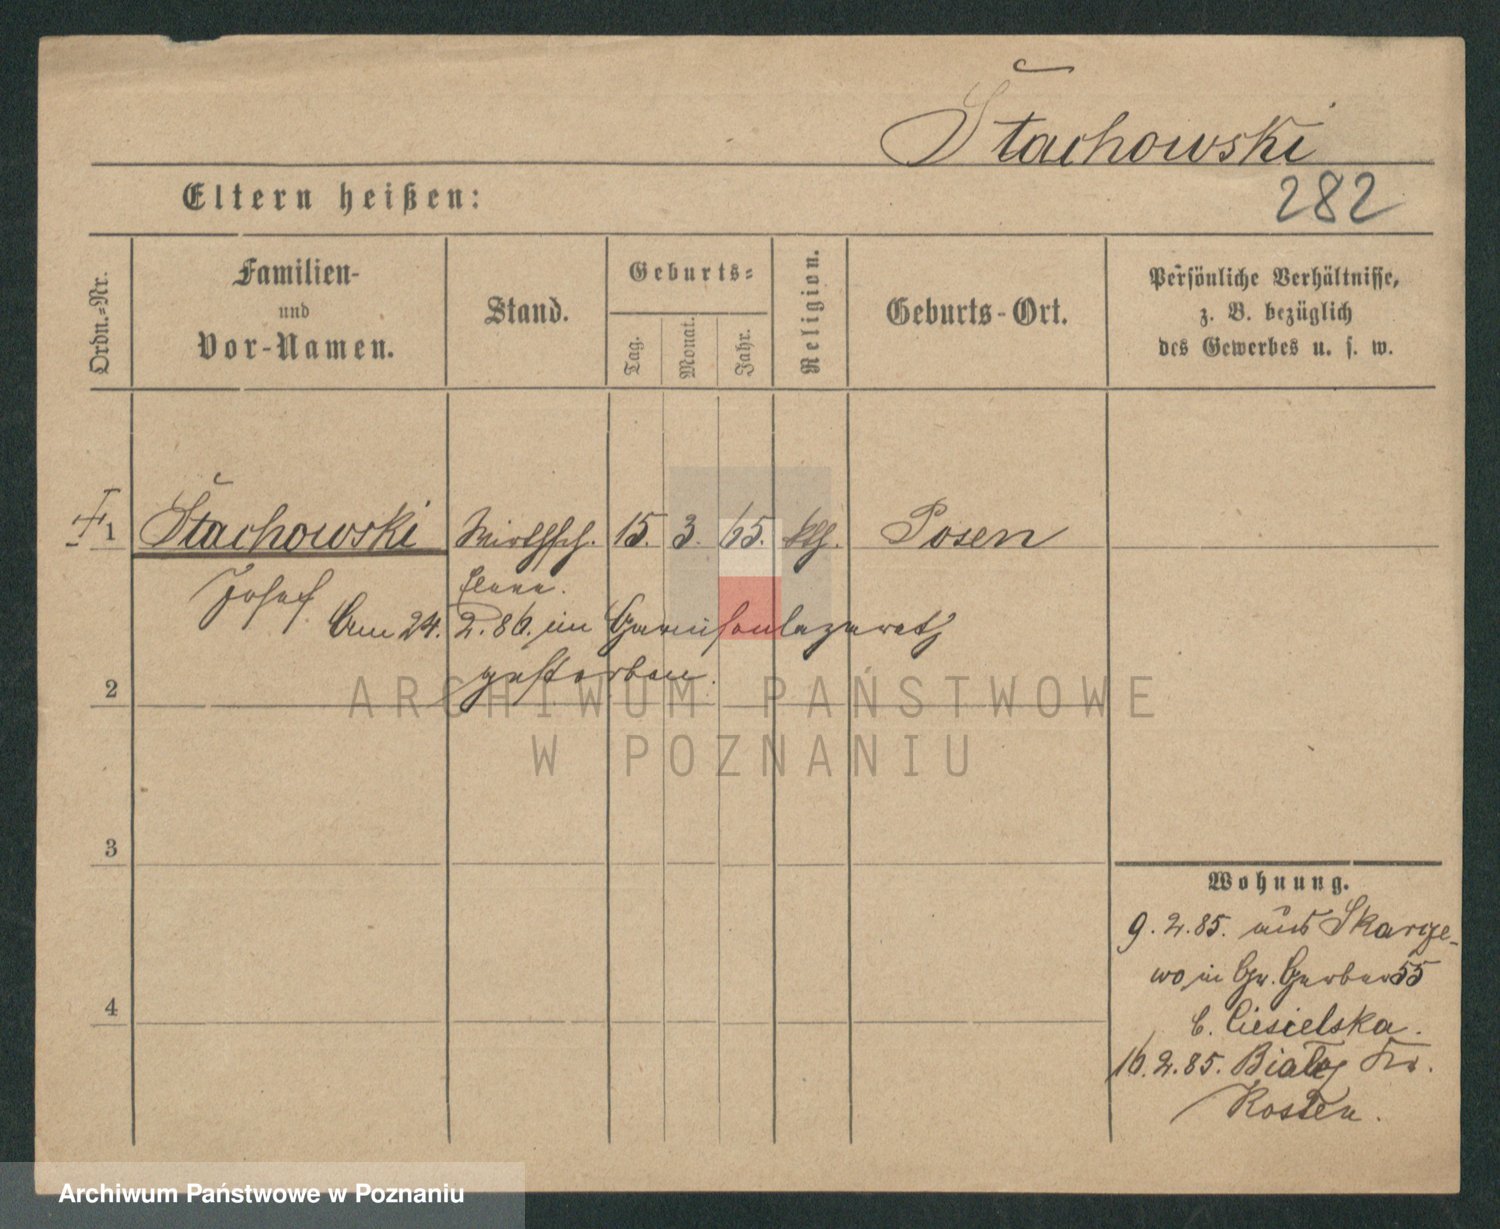 Stachowski
282
Eltern heißen:
Ordn.-Nr.
Familien-
und
Vor-Namen.
Stand.
Geburts-
Tag.
Monat.
Jahr.
Religion.
Geburts-Ort.
Persönliche Verhältnisse,
z. B. bezüglich
des Gewerbes u. s. w.
1 Stachowski Wirthsch. 15. 3. 65. kth. Posen
Josef
Am 24. 2. 86. im Garnisonlazareth
gestorben.
2
3
4
Wohnung.
9. 2. 85. aus Skarge-
wo in Gr. Gerber 55
b. Ciesielska.
16. 2. 85. Kr.
Kosten.
ARCHIWUM PAŃSTWOWE
W POZNANIU
Archiwum Państwowe w Poznaniu